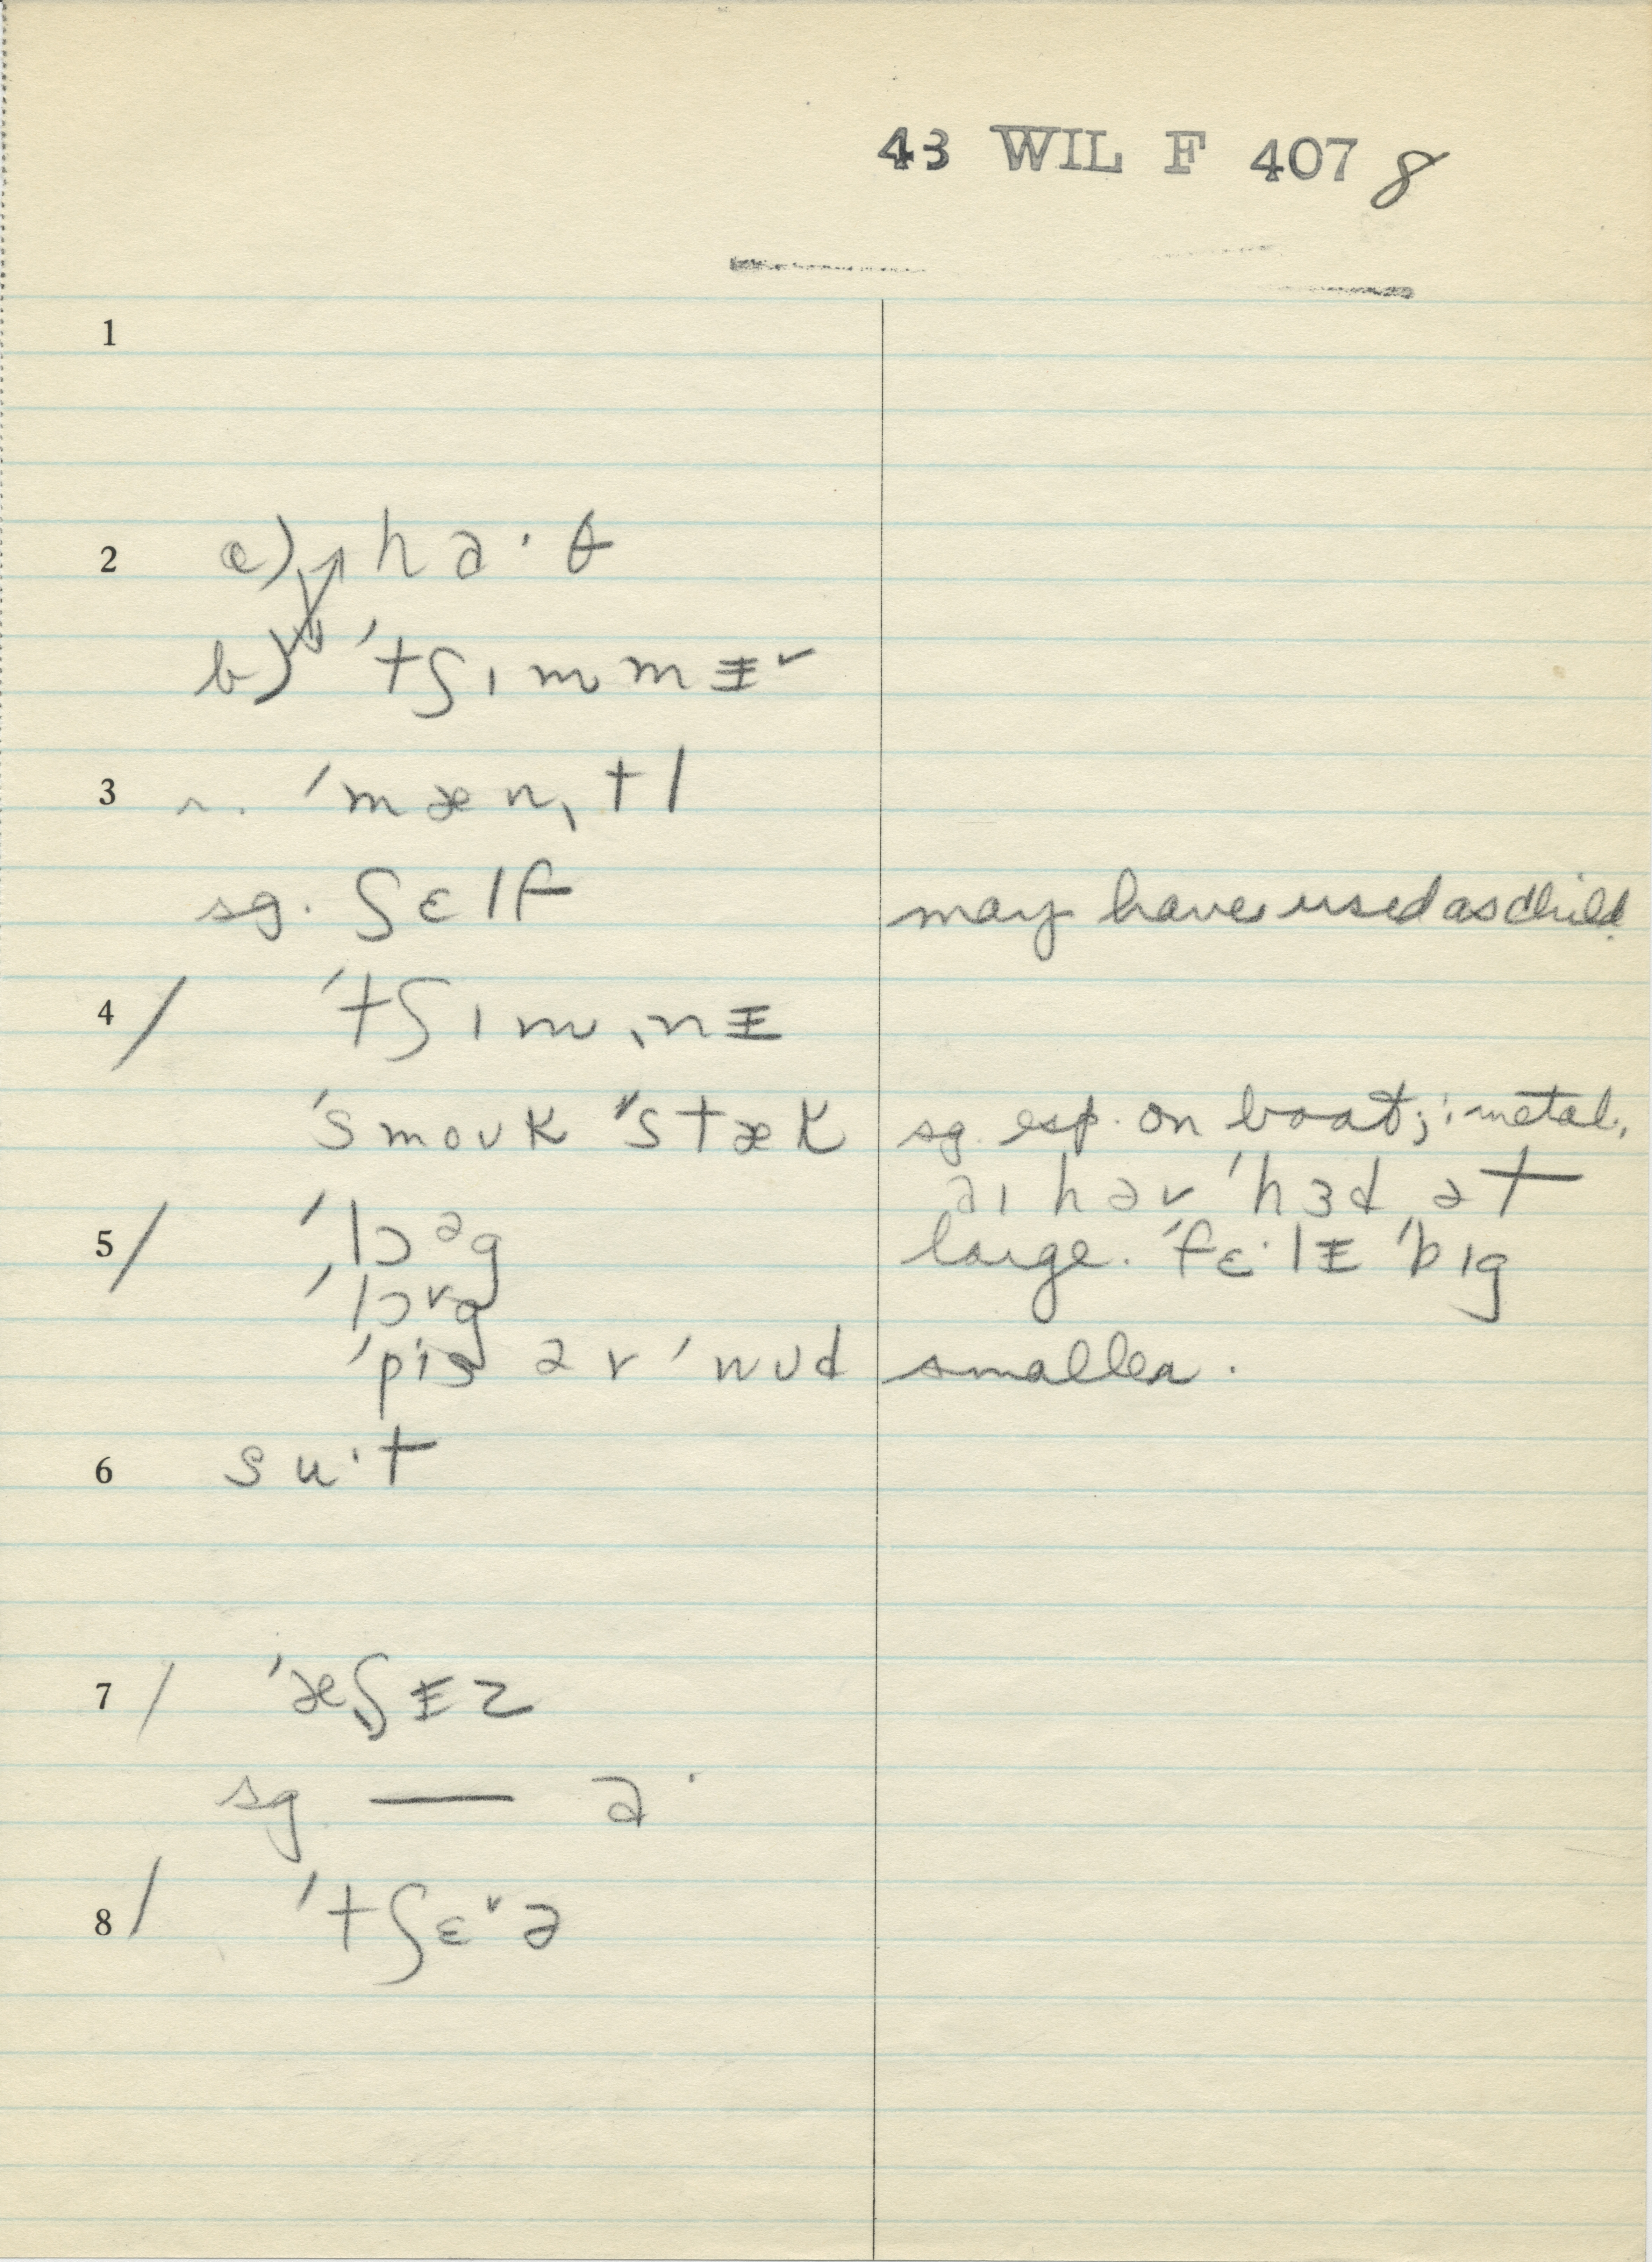 43 WIL F 407 8
1
2 a) ha·θ
b) 'tʃɪmmᵻ˅
3 r. 'mæn,tl
sg. ʃɛlf may have used as child.
4 / 'tʃɪm,nᵻ
'smoʊk "stæk sg. esp. on boat; : metal.
aɪ həv 'hɜd ət
5 / 'lɔᵊg large. 'fɛ·lᵻ 'bɪg
'lɔ˅g
'pis əv 'wʊd smaller.
6 su·t
7 / 'æʃᵻz
sg — a·
8 / 'tʃɛ˅ə